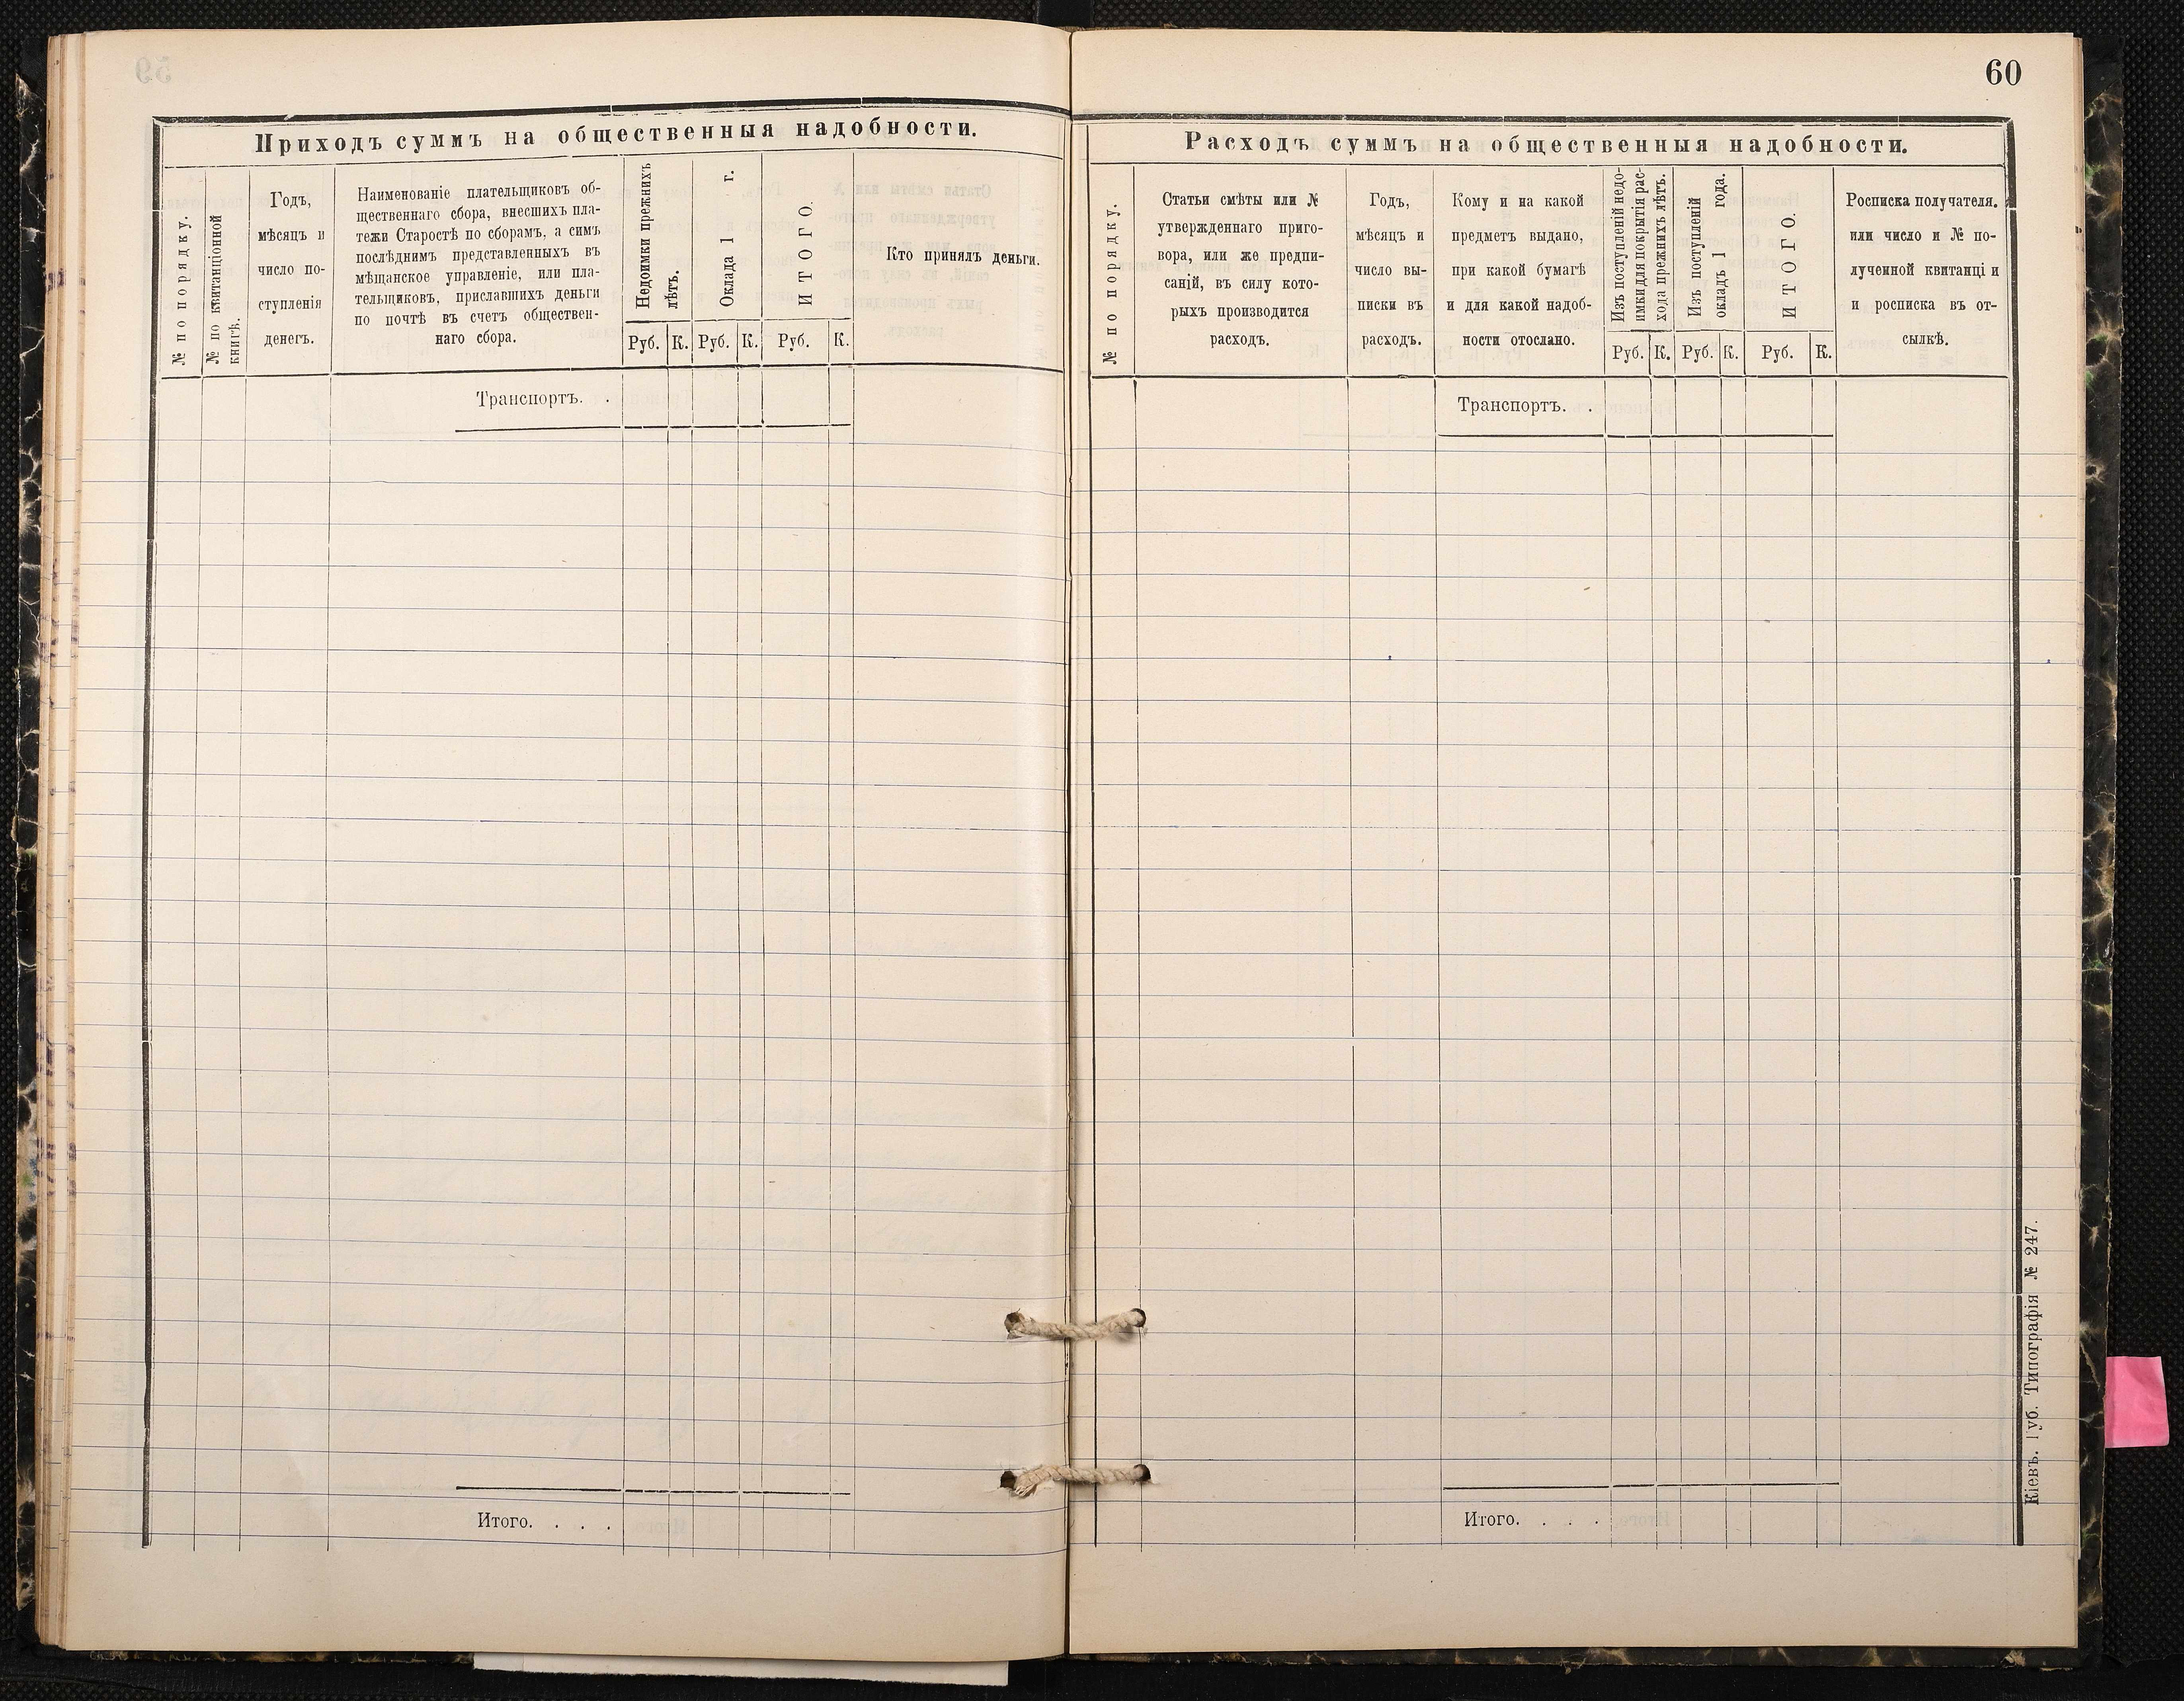 60
Приходъ суммъ на общественныя надобности.
№ по порядку.
№ по квитанціонной
книгѣ.
Годъ,
мѣсяцъ и
число по-
ступленія
денегъ.
Наименованіе плательщиковъ об-
щественнаго сбора, внесшихъ пла-
тежи Старостѣ по сборамъ, а симъ
послѣднимъ представленныхъ въ
мѣщанское управленіе, или пла-
тельщиковъ, приславшихъ деньги
по почтѣ въ счетъ обществен-
наго сбора.
Недоимки прежнихъ
лѣтъ.
Оклада 1 г.
ИТОГО.
Руб. К. Руб. К. Руб. К.
Кто принялъ деньги.
Транспортъ. .
Итого. . . .
Расходъ суммъ на общественныя надобности.
№ по порядку.
Статьи смѣты или №
утвержденнаго приго-
вора, или же предпи-
саній, въ силу кото-
рыхъ производится
расходъ.
Годъ,
мѣсяцъ и
число вы-
писки въ
расходъ.
Кому и на какой
предметъ выдано,
при какой бумагѣ
и для какой надоб-
ности отослано.
Изъ поступленій недо-
имки для покрытія рас-
хода прежнихъ лѣтъ.
Изъ поступленій
окладъ 1 года.
ИТОГО.
Руб. К. Руб. К. Руб. К.
Росписка получателя.
или число и № по-
лученной квитанці и
и росписка въ от-
сылкѣ.
Транспортъ. .
Итого. . . .
Кіевъ. Губ. Типографія № 247.